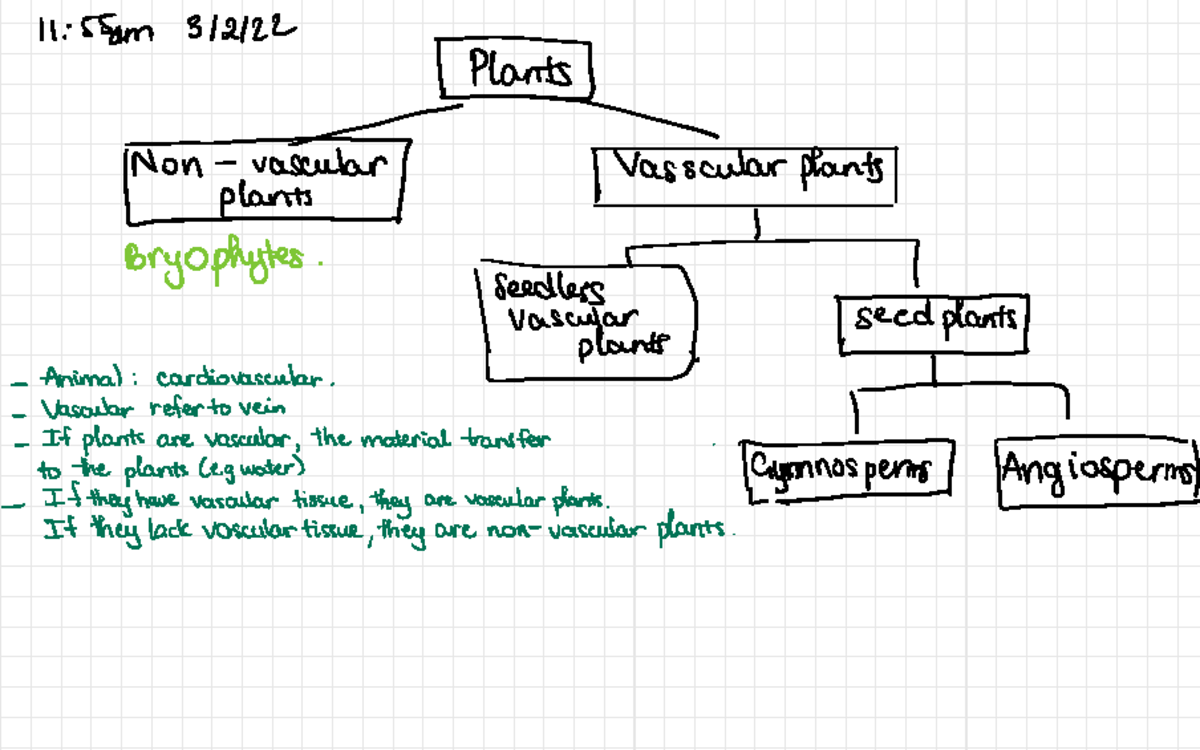 11:55am 3/2/22
Plants
Non - vascular
plants
Vasscular plants
Bryophytes.
Seedless
Vascular
plants
seed plants
Gymnosperms
Angiosperms
- Animal : cardiovascular.
- Vascular refer to vein
- If plants are vascular, the material transfer
to the plants (e.g water)
- If they have vascular tissue, they are vascular plants.
If they lack vascular tissue, they are non-vascular plants.